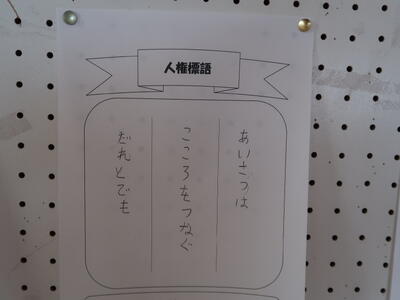 人権標語
あいさつは
こころをつなぐ
だれとでも